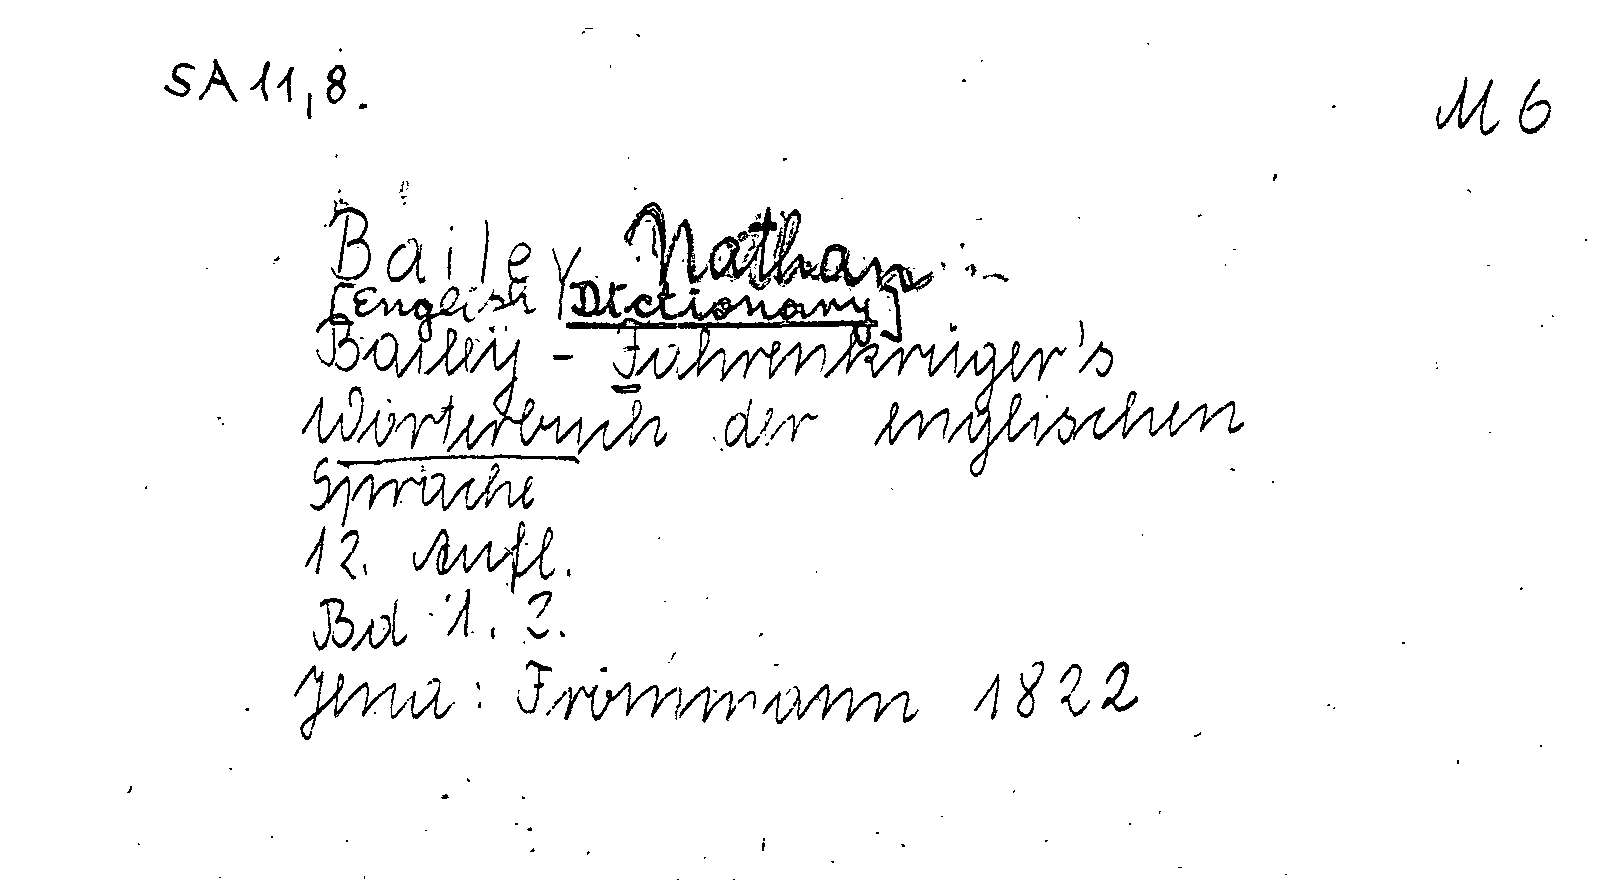 SA 11,8.
M 6
Bailey Nathan
[English Dictionary]
Bailey - Fahrenkrüger's
Wörterbuch der englischen
Sprache
12. Aufl.
Bd 1. 2.
Jena: Frommann 1822